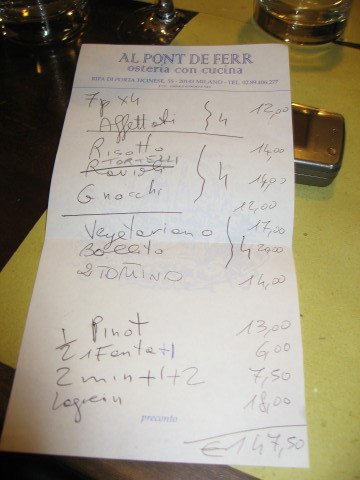 AL PONT DE FERR
osteria con cucina
RIPA DI PORTA TICINESE, 55 - 20143 MILANO - TEL. 02/89.406.277
7p x4 12,00
Affettati 4
Risotto 14,00
TORTELLI
Ravioli 4 14,00
Gnocchi 12,00
Vegetariano 17,00
Bollito 4 20,00
2 TOMINO 14,00
½ Pinot 13,00
2 1 Fanta+1 6,00
2 min+1+2 7,50
Lagrein 18,00
preconto
€ 147,50